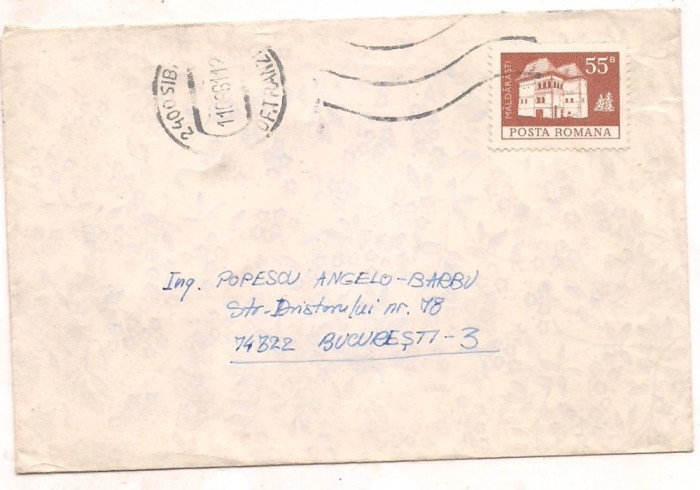 2400 SIB
11
OF.TRANZ
MĂLDĂRĂȘTI
55 B
POSTA ROMANA
Ing. POPESCU ANGELO-BARBU
Str. Dristorului nr. 78
74322 BUCUREȘTI-3